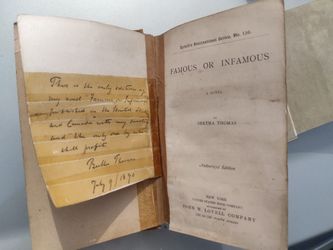 This is the only edition of
my novel "Famous or Infamous"
published in the United States
and Canada with my sanction
and the only one by which
I shall profit.
Bertha Thomas
July 9/1890
Lovell's International Series, No. 110.
FAMOUS OR INFAMOUS
A NOVEL
BY
BERTHA THOMAS
Authorized Edition
NEW YORK
UNITED STATES BOOK COMPANY
SUCCESSORS TO
JOHN W. LOVELL COMPANY